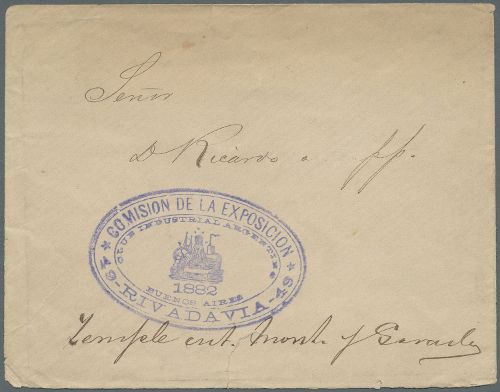 Señor
D Ricardo
COMISION DE LA EXPOSICION
CLUB INDUSTRIAL ARGENTINO
1882
BUENOS AIRES
49-RIVADAVIA-49
Temple ent. Mont. y